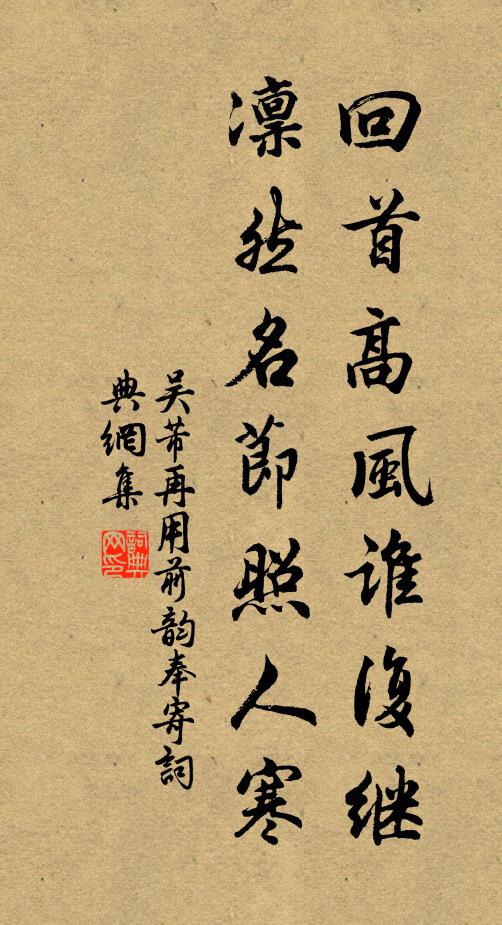 回首高風谁復继
凛然名節照人寒
吴芾再用前韵奉寄詞
典網集
詞典
网印